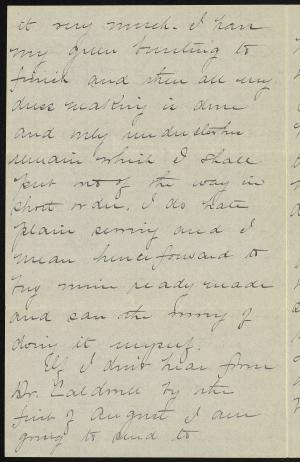 it very much. I have
my green bunting to
finish and then all my
dress making is done
and only underclothes
remain which I shall
put out of the way in
short order. I do hate
plain sewing and I
mean henceforward to
buy mine ready made
and save the worry of
doing it myself.
If I don't hear from
Dr. Caldwell by the
first of August I am
going to send to